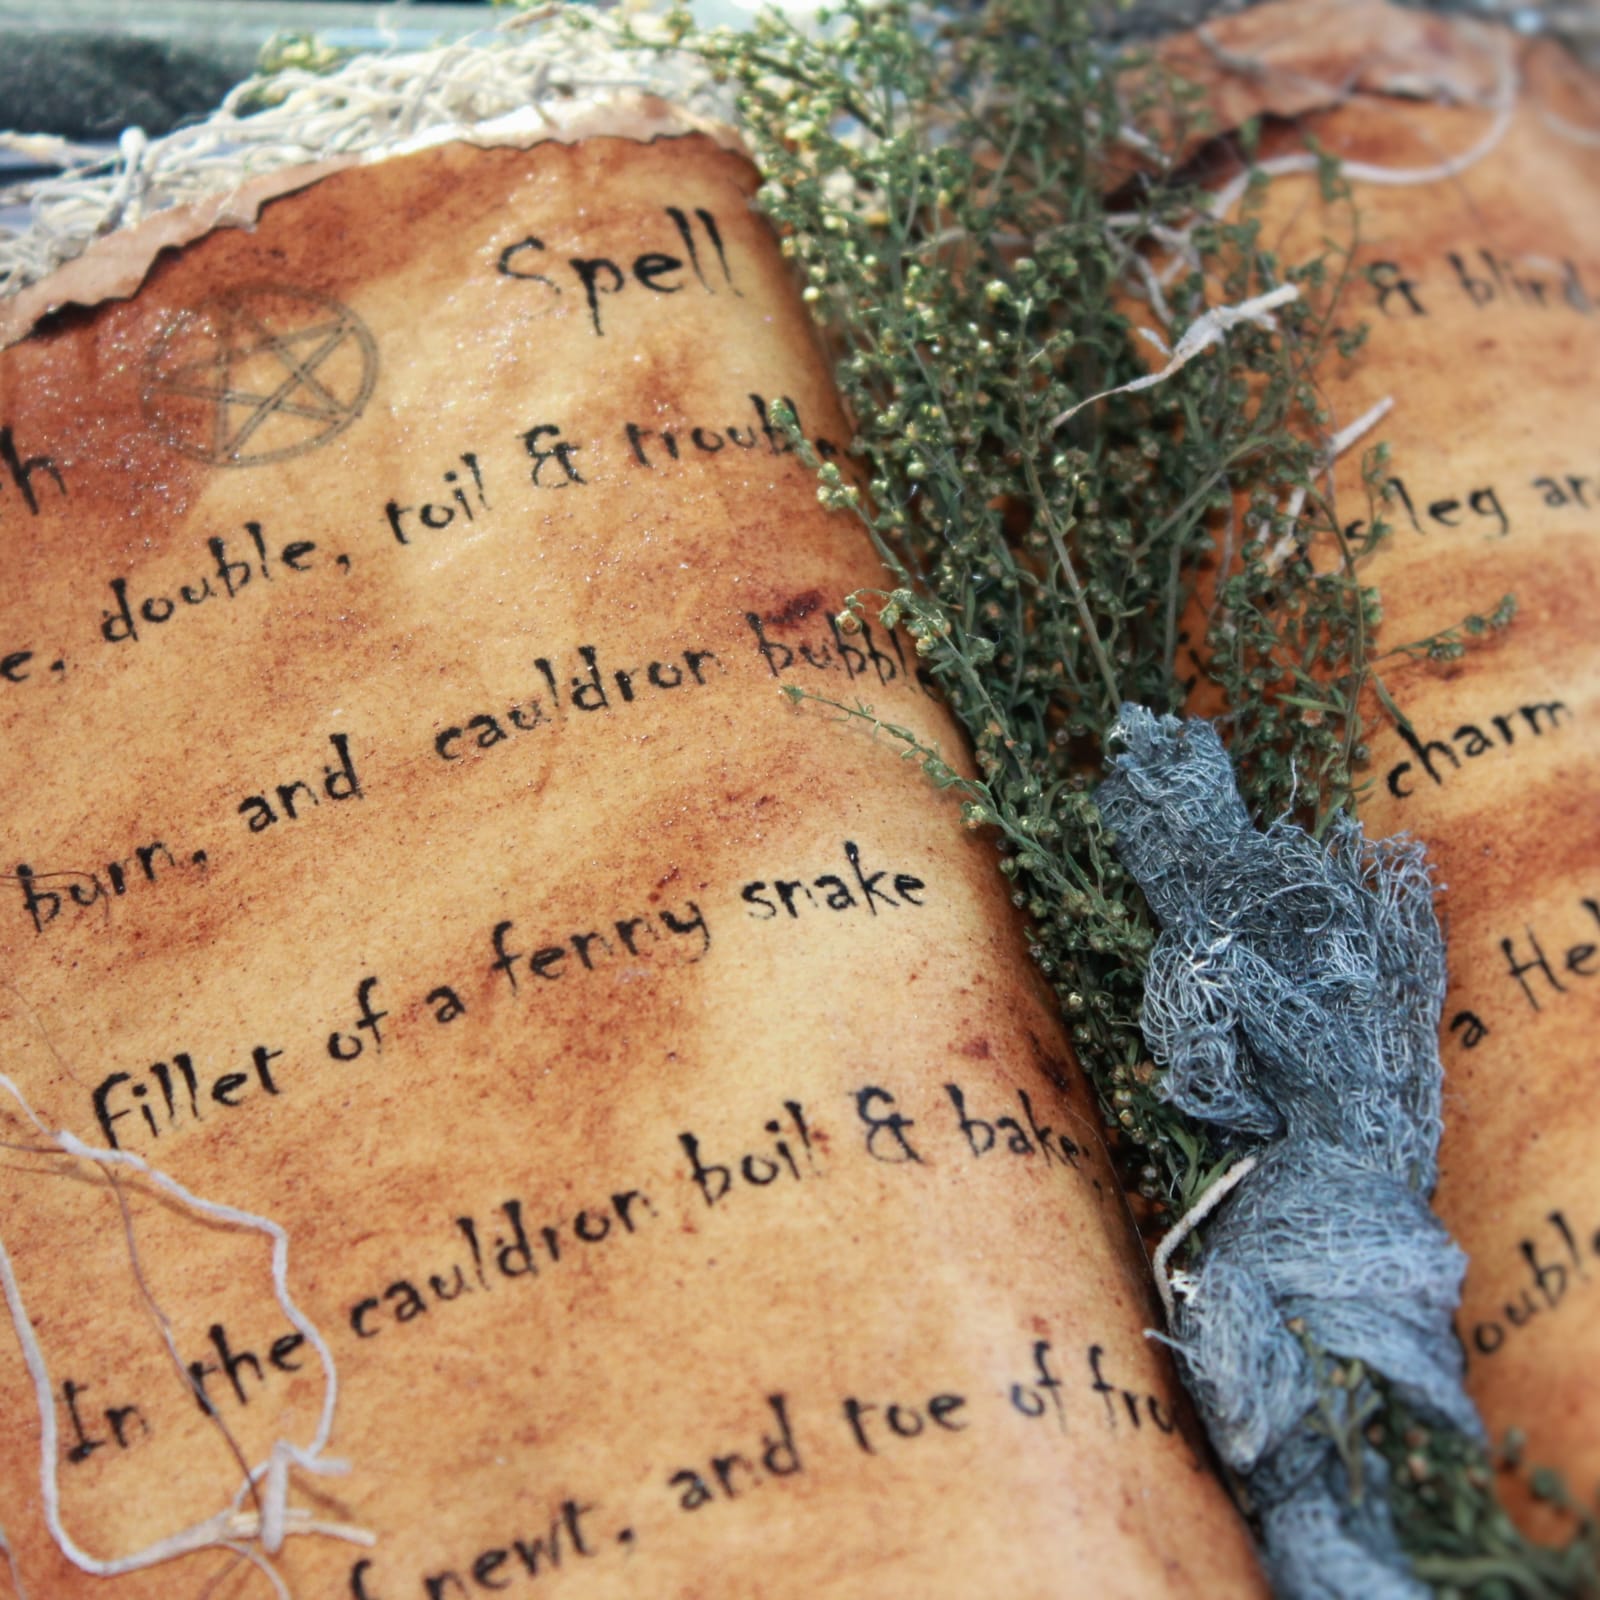 Spell
double, toil & trouble
burn, and cauldron bubble
Fillet of a fenny snake
In the cauldron boil & bake;
newt, and toe of
& blind
leg
charm
a